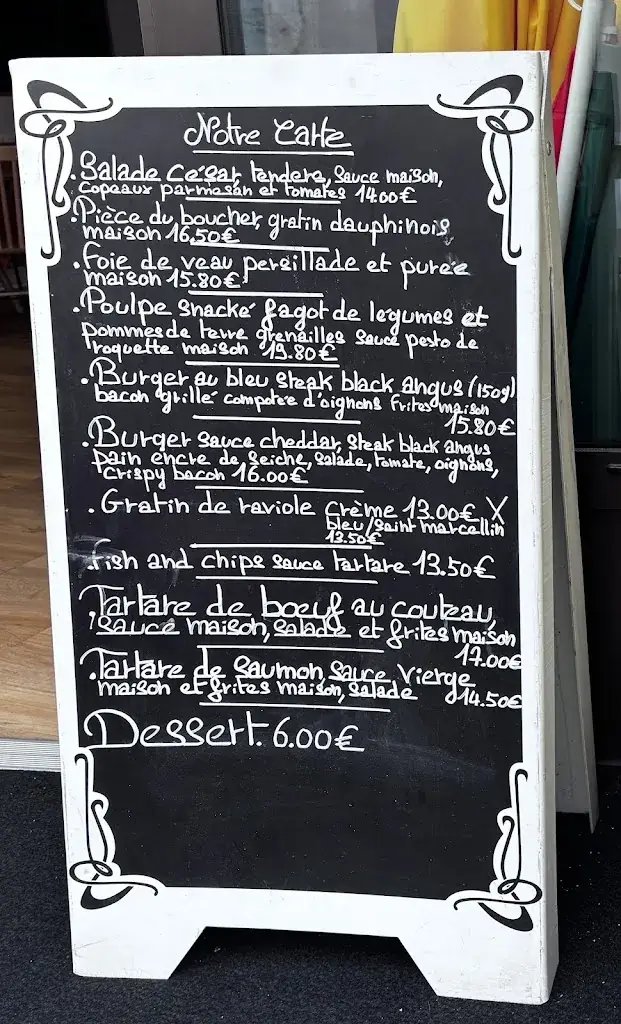 Notre Carte
.Salade César, tenders, sauce maison,
copeaux parmesan et tomates 14.00€
.Pièce du boucher, gratin dauphinois
maison 16,50€
.Foie de veau persillade et purée
maison 15.80€
.Poulpe snacké fagot de légumes et
pommes de terre grenailles sauce pesto de
roquette maison 19.80€
.Burger au bleu steak black angus (150g)
bacon grillé compotée d'oignons frites maison
15.80€
.Burger sauce cheddar, steak black angus
pain encre de seiche, salade, tomate, oignons,
crispy bacon 16.00€
.Gratin de raviole crème 13.00€ X
bleu/saint marcellin
13.50€
.fish and chips sauce tartare 13.50€
.Tartare de boeuf au couteau,
sauce maison, salade et frites maison
17.00€
.Tartare de saumon, sauce vierge
maison et frites maison, salade 14.50€
Dessert. 6.00€